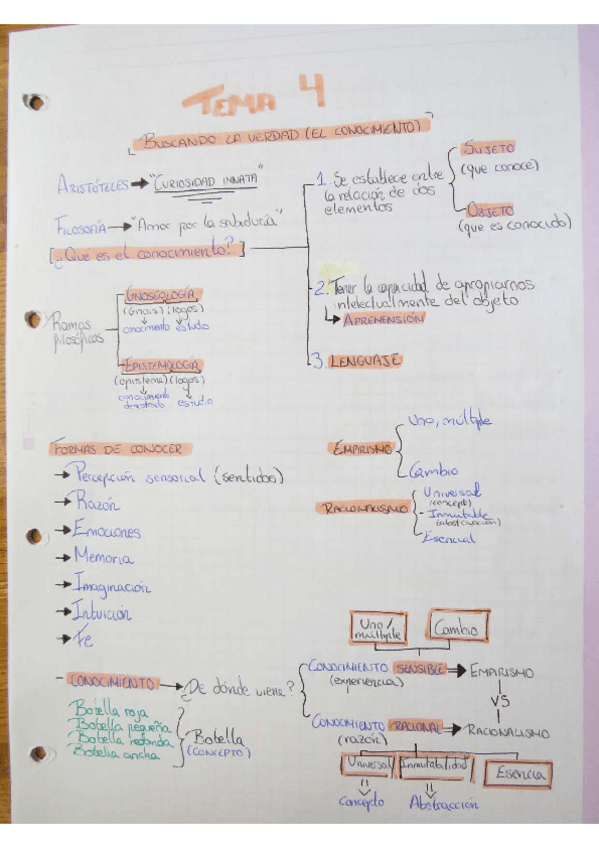 TEMA 4
BUSCANDO LA VERDAD (EL CONOCIMIENTO)
ARISTÓTELES → "CURIOSIDAD INNATA"
FILOSOFÍA → "Amor por la sabiduría"
¿Que es el conocimiento?
1. Se establece entre
la relación de dos
elementos
SUJETO
(que conoce)
OBJETO
(que es conocido)
2. Tener la capacidad de apropiarnos
intelectualmente del objeto
↳ APREHENSIÓN
3. LENGUAJE
Ramas
filosóficos
GNOSEOLOGÍA
(Gnosis) (logos)
conocimiento estudio
EPISTEMOLOGÍA
(epistema) (logos)
conocimiento estudio
FORMAS DE CONOCER
→ Percepción sensorial (sentidos)
→ Razón
→ Emociones
→ Memoria
→ Imaginación
→ Intuición
→ Fe
EMPIRISMO
Uno, múltiple
Cambio
RACIONALISMO
Universal
(concepto)
Inmutable
Esencial
- CONOCIMIENTO → ¿De dónde viene?
Botella roja
Botella pequeña
Botella redonda
Botella ancha
Botella
(CONCEPTO)
Uno/
múltiple
Cambio
CONOCIMIENTO SENSIBLE ⇒ EMPIRISMO
(experiencia)
VS
CONOCIMIENTO RACIONAL ⇒ RACIONALISMO
(razón)
Universal Inmutabilidad Esencia
Concepto Abstracción